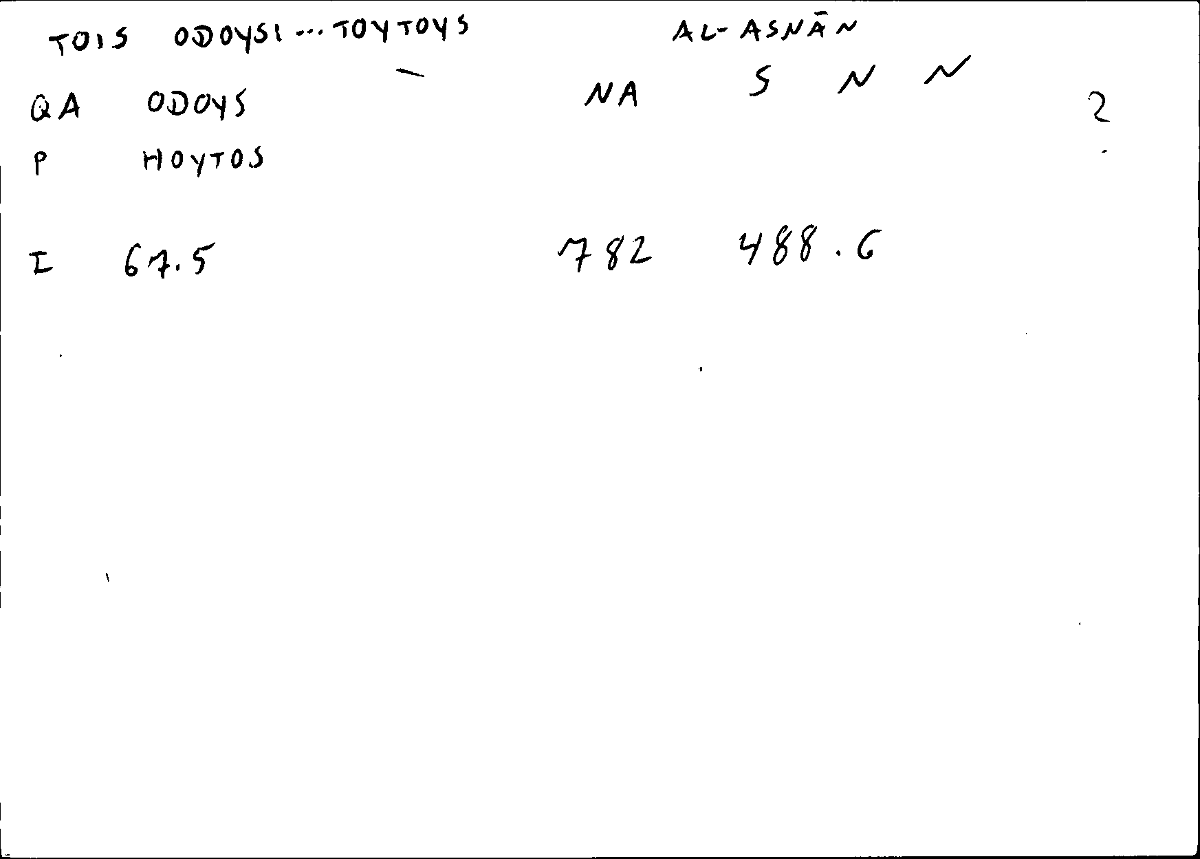 TOIS ODOYSI...TOYTOYS AL-ASNĀN
QA ODOYS NA S N N ?
P HOYTOS
I 67.5 782 488.6